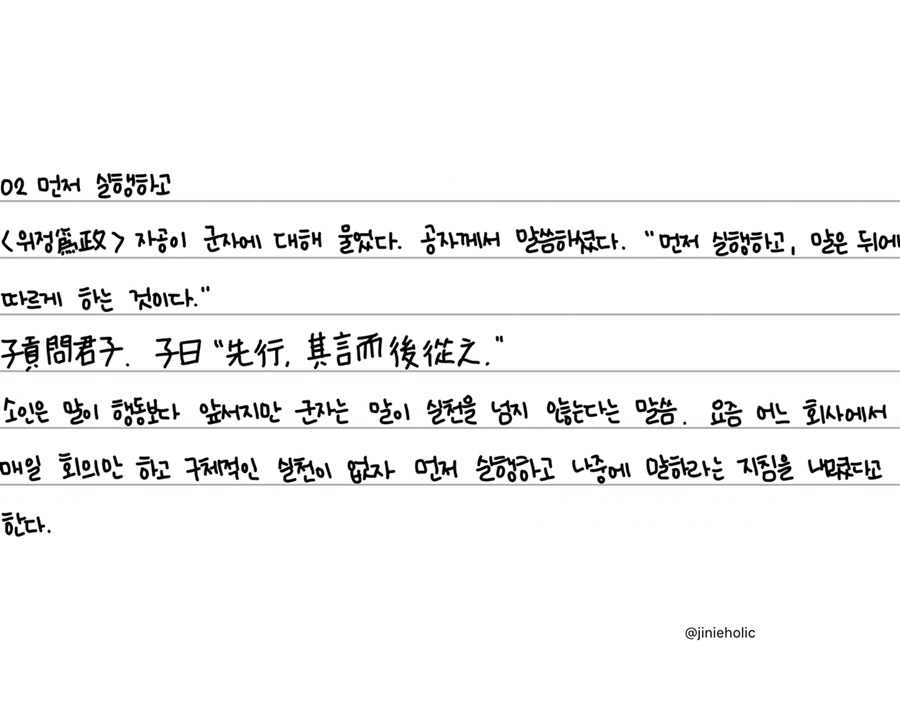 02 먼저 실행하고
<위정爲政> 자공이 군자에 대해 물었다. 공자께서 말씀하셨다. "먼저 실행하고, 말은 뒤에
따르게 하는 것이다."
子貢問君子. 子曰 "先行, 其言而後從之."
소인은 말이 행동보다 앞서지만 군자는 말이 실천을 넘지 않는다는 말씀. 요즘 어느 회사에서
매일 회의만 하고 구체적인 실천이 없자 먼저 실행하고 나중에 말하라는 지침을 내렸다고
한다.
@jinieholic